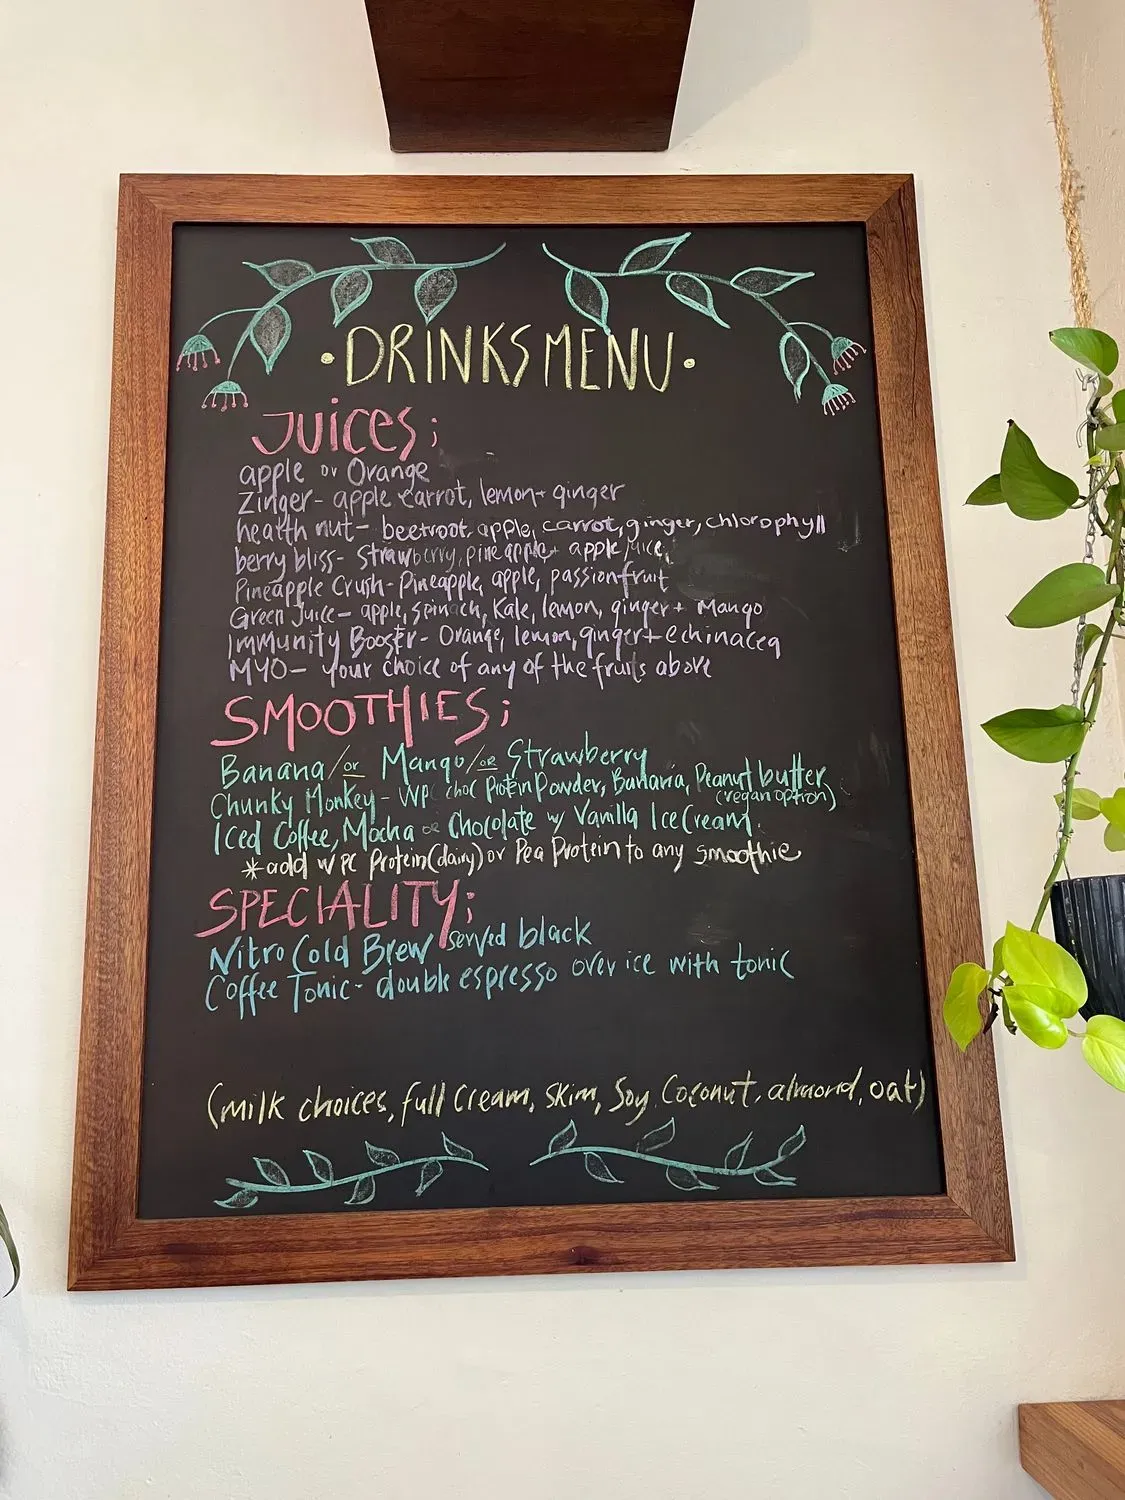 • DRINKS MENU •
JUICES;
apple or Orange
Zinger - apple carrot, lemon + ginger
health nut - beetroot, apple, carrot, ginger, chlorophyll
berry bliss - Strawberry, pineapple + apple juice
Pineapple Crush - Pineapple, apple, passionfruit
Green Juice - apple, spinach, Kale, lemon, ginger + Mango
Immunity Booster - Orange, lemon, ginger + echinacea
MYO - your choice of any of the fruits above
SMOOTHIES;
Banana / or Mango / OR Strawberry
Chunky Monkey - WPC choc Protein Powder, Banana, Peanut butter
(vegan option)
Iced Coffee, Mocha OR Chocolate w/ Vanilla Ice Cream.
*add WPC Protein (dairy) or Pea Protein to any smoothie
SPECIALITY;
Nitro Cold Brew served black
Coffee Tonic - double espresso over ice with tonic
(milk choices, full cream, skim, Soy, Coconut, almond, oat)